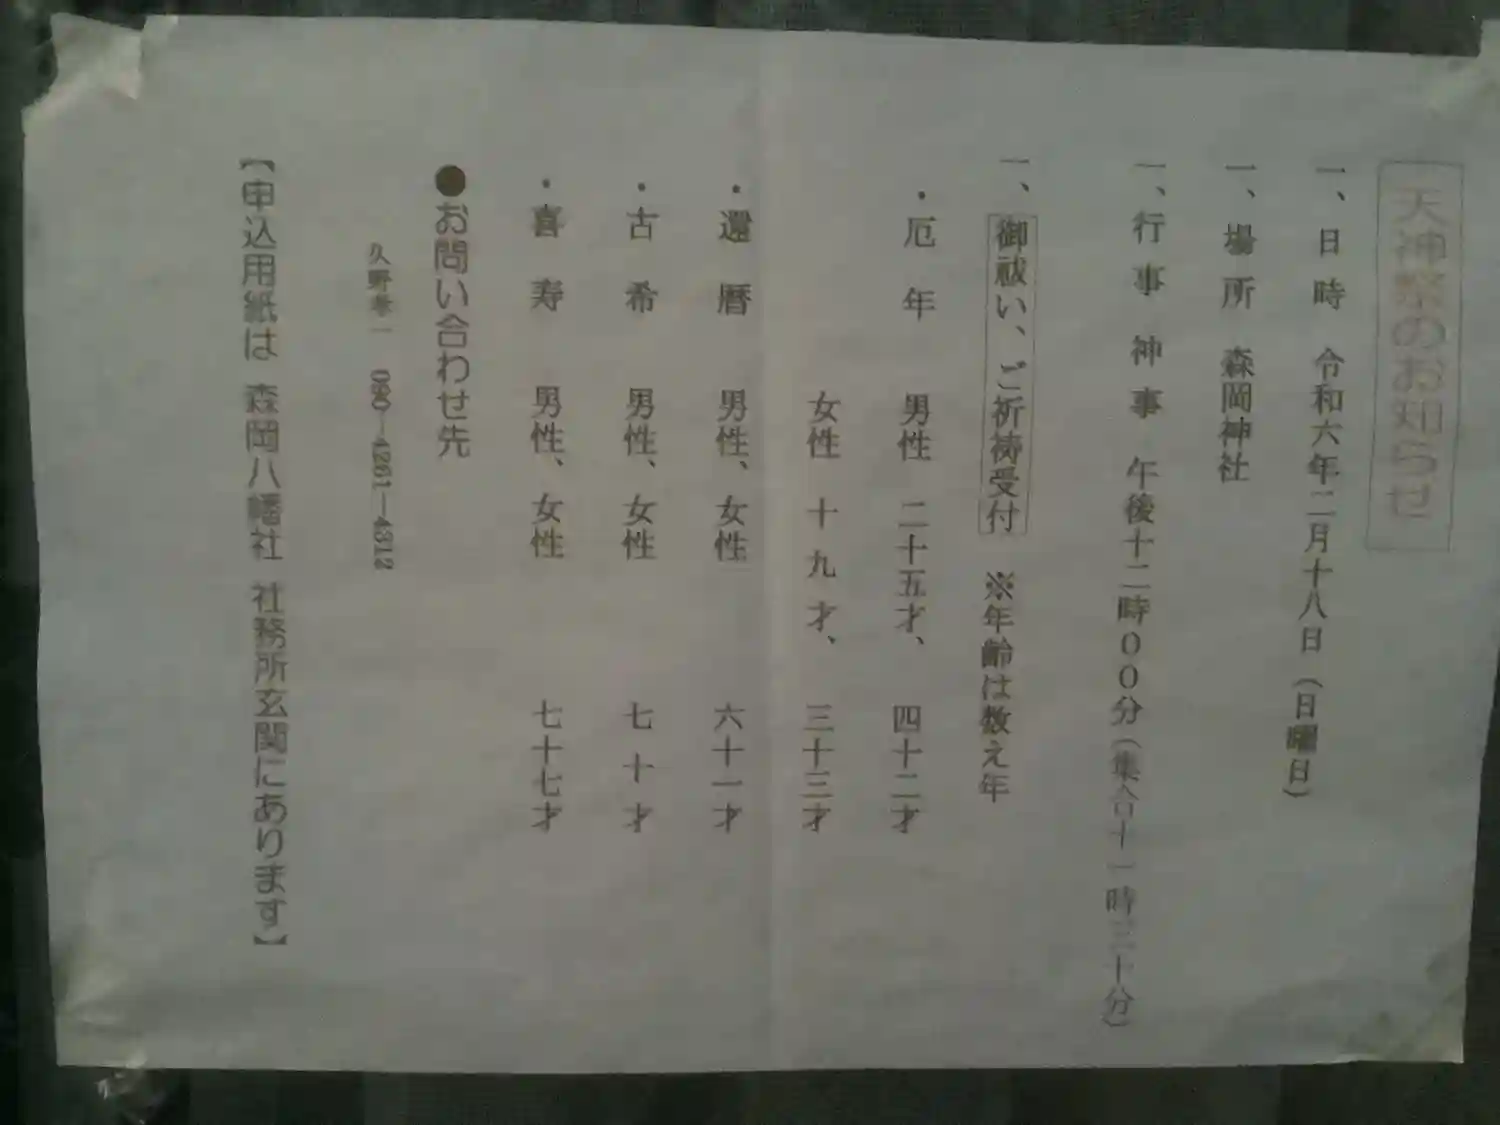 天神祭のお知らせ
一、日時 令和六年二月十八日(日曜日)
一、場所 森岡神社
一、行事 神事 午後十二時00分(集合十一時三十分)
一、御祓い、ご祈祷受付 ※年齢は数え年
・厄年 男性 二十五才、 四十二才
女性 十九才、 三十三才
・還暦 男性、女性 六十一才
・古希 男性、女性 七十才
・喜寿 男性、女性 七十七才
●お問い合わせ先
久野 一 090-4261-4312
【申込用紙は 森岡八幡社 社務所玄関にあります】